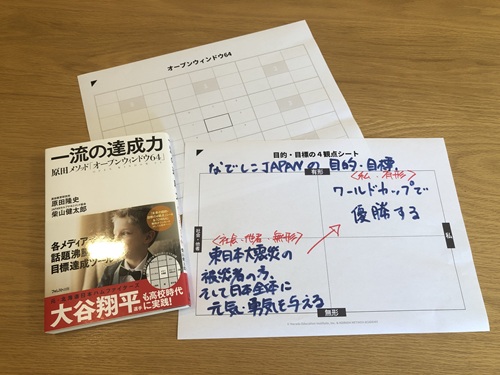 オープンウィンドウ64
一流の達成力
原田メソッド「オープンウィンドウ64」
原田隆史
柴山健太郎
各メディアで
話題沸騰の
目標達成ツール
大谷翔平
選手
も高校時代
に実践!
目的・目標の4観点シート
なでしこJAPANの目的・目標
有形
<私・有形>
ワールドカップで
優勝する
社会・他者
私
<社会・他者・無形>
東日本大震災の
被災者の方、
そして日本全体に
元気・勇気を与える
無形